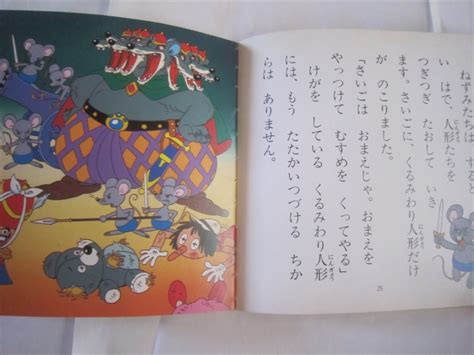 ねずみたちは、
い はで、人形たちを
つぎつぎ たおして いき
ます。さいごに、くるみわり人形だけ
が のこりました。
「さいごは おまえじゃ。おまえを
やっつけて むすめを くってやる」
けがを している くるみわり人形
には、もう たたかいつづける ちか
らは ありません。
25